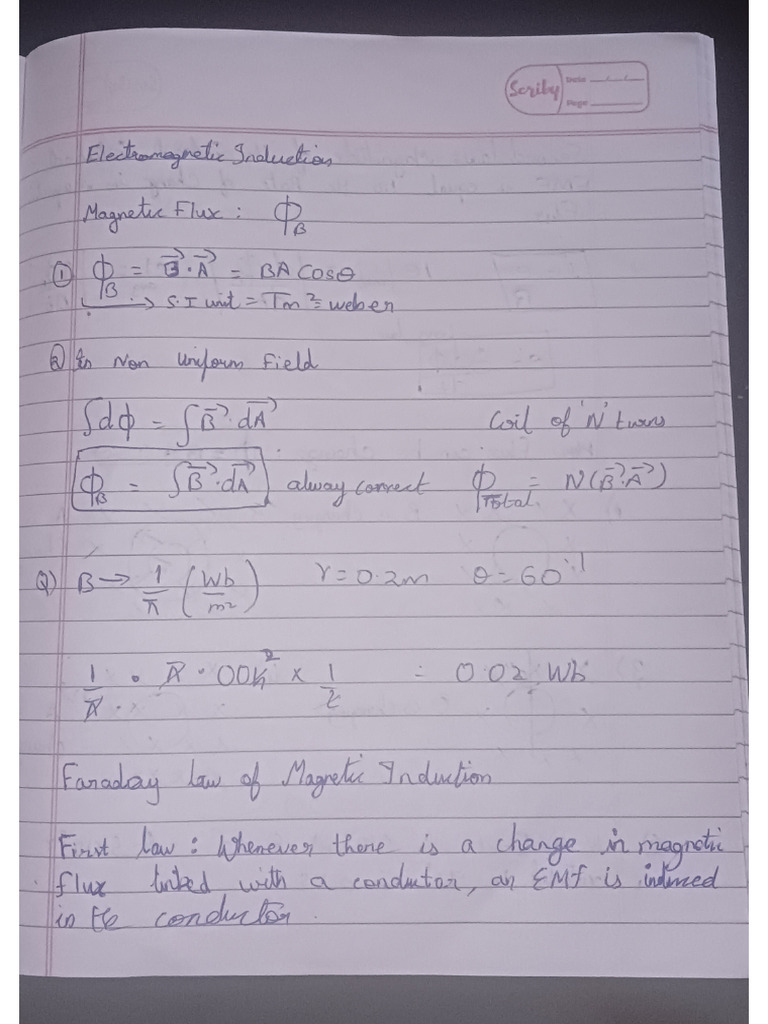 Scriby Date
Page
Electromagnetic Induction
Magnetic Flux : ϕ_B
① ϕ_B = B⃗·A⃗ = BA Cosθ
→ S.I unit = Tm² = weber
② In Non Uniform Field
∫dϕ = ∫B⃗·dA⃗ Coil of 'N' turns
ϕ_B = ∫B⃗·dA⃗ alway correct ϕ_Total = N(B⃗·A⃗)
Q) B → 1/π (Wb/m²) r = 0.2m θ = 60
1/π · π · 004 2 × 1/2 = 0.02 Wb
Faraday law of Magnetic Induction
First law : Whenever there is a change in magnetic
flux linked with a conductor, an EMf is induced
in the conductor.